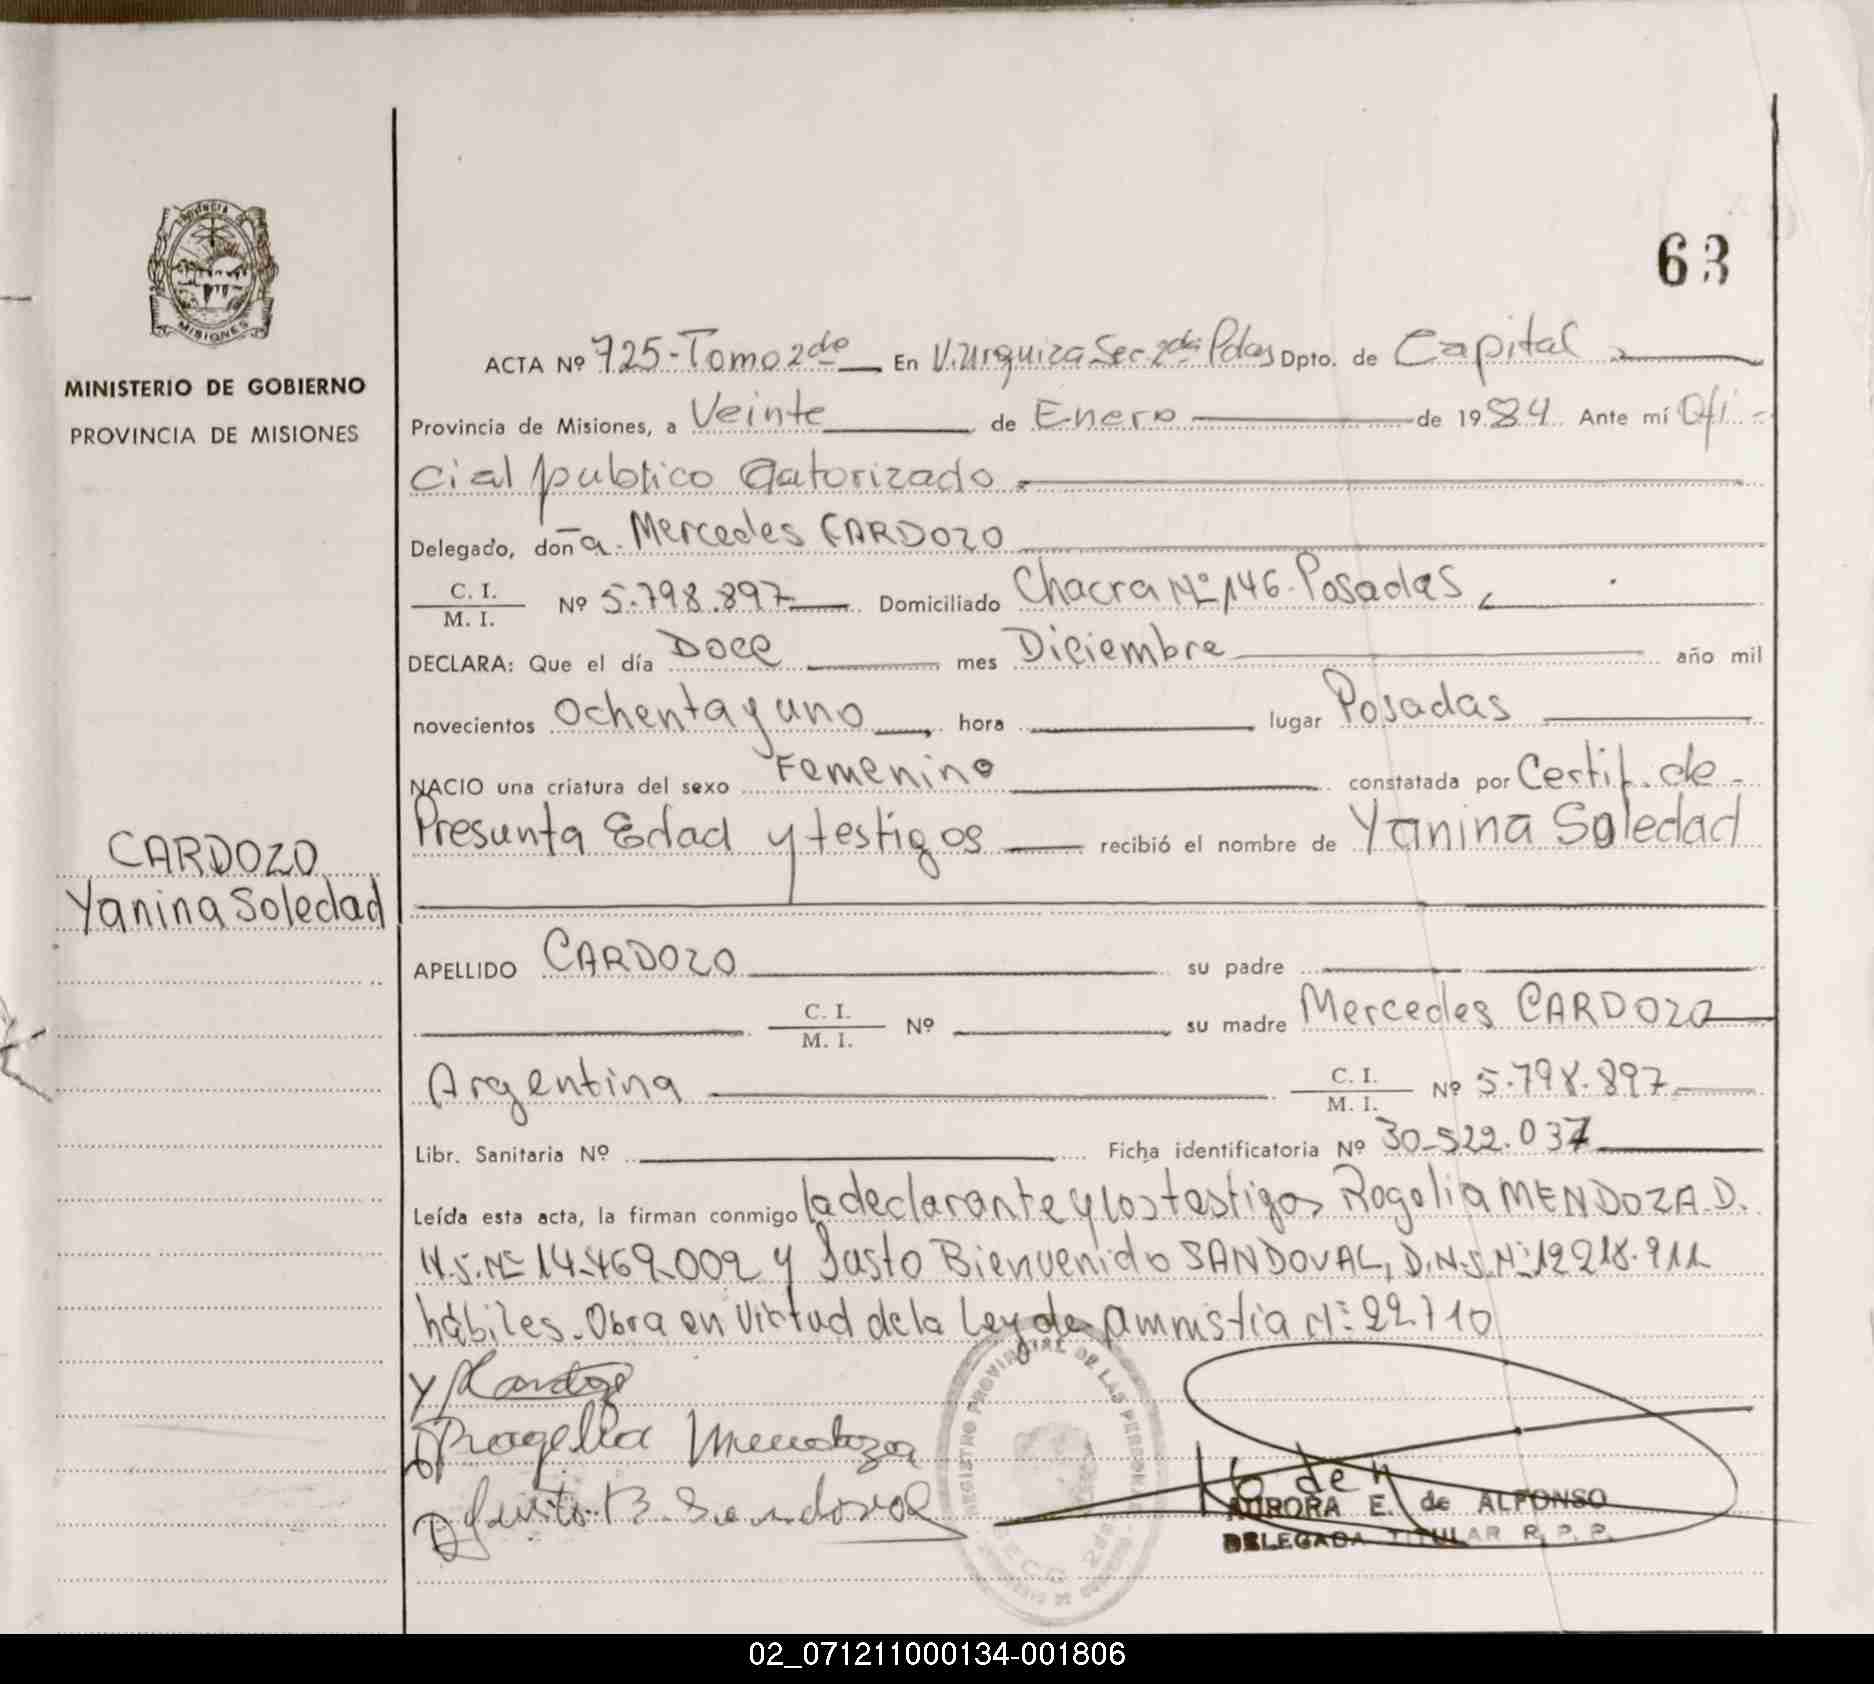 PROVINCIA DE
MISIONES
MINISTERIO DE GOBIERNO
PROVINCIA DE MISIONES
63
ACTA Nº 725-Tomo 2do En V.Urquiza Sec 2da Pdas Dpto. de Capital
Provincia de Misiones, a Veinte de Enero de 1984 Ante mí Ofi-
cial publico autorizado
Delegado, doña Mercedes CARDOZO
C. I.
M. I. Nº 5.798.897 Domiciliado Chacra Nº 146-Posadas
DECLARA: Que el día Doce mes Diciembre año mil
novecientos Ochenta y uno hora lugar Posadas
NACIO una criatura del sexo Femenino constatada por Certif. de-
Presunta Edad y testigos recibió el nombre de Yanina Soledad
CARDOZO
Yanina Soledad
APELLIDO CARDOZO su padre
C. I.
M. I. Nº su madre Mercedes CARDOZO
Argentina C. I.
M. I. Nº 5.798.897
Libr. Sanitaria Nº Ficha identificatoria Nº 30-522.037
Leída esta acta, la firman conmigo la declarante y los testigos Rogelia MENDOZA D.
N.I.Nº 14.469.002 y Justo Bienvenido SANDOVAL, D.N.I.Nº 12218.911
hábiles. Obra en Virtud de la Ley de Amnistia Nº 22.710
Cardozo
Rogelia Mendoza
Justo B. Sandoval
REGISTRO PROVINCIAL DE LAS PERSONAS
AURORA E. de ALFONSO
DELEGADA TITULAR R. P. P.
02_071211000134-001806